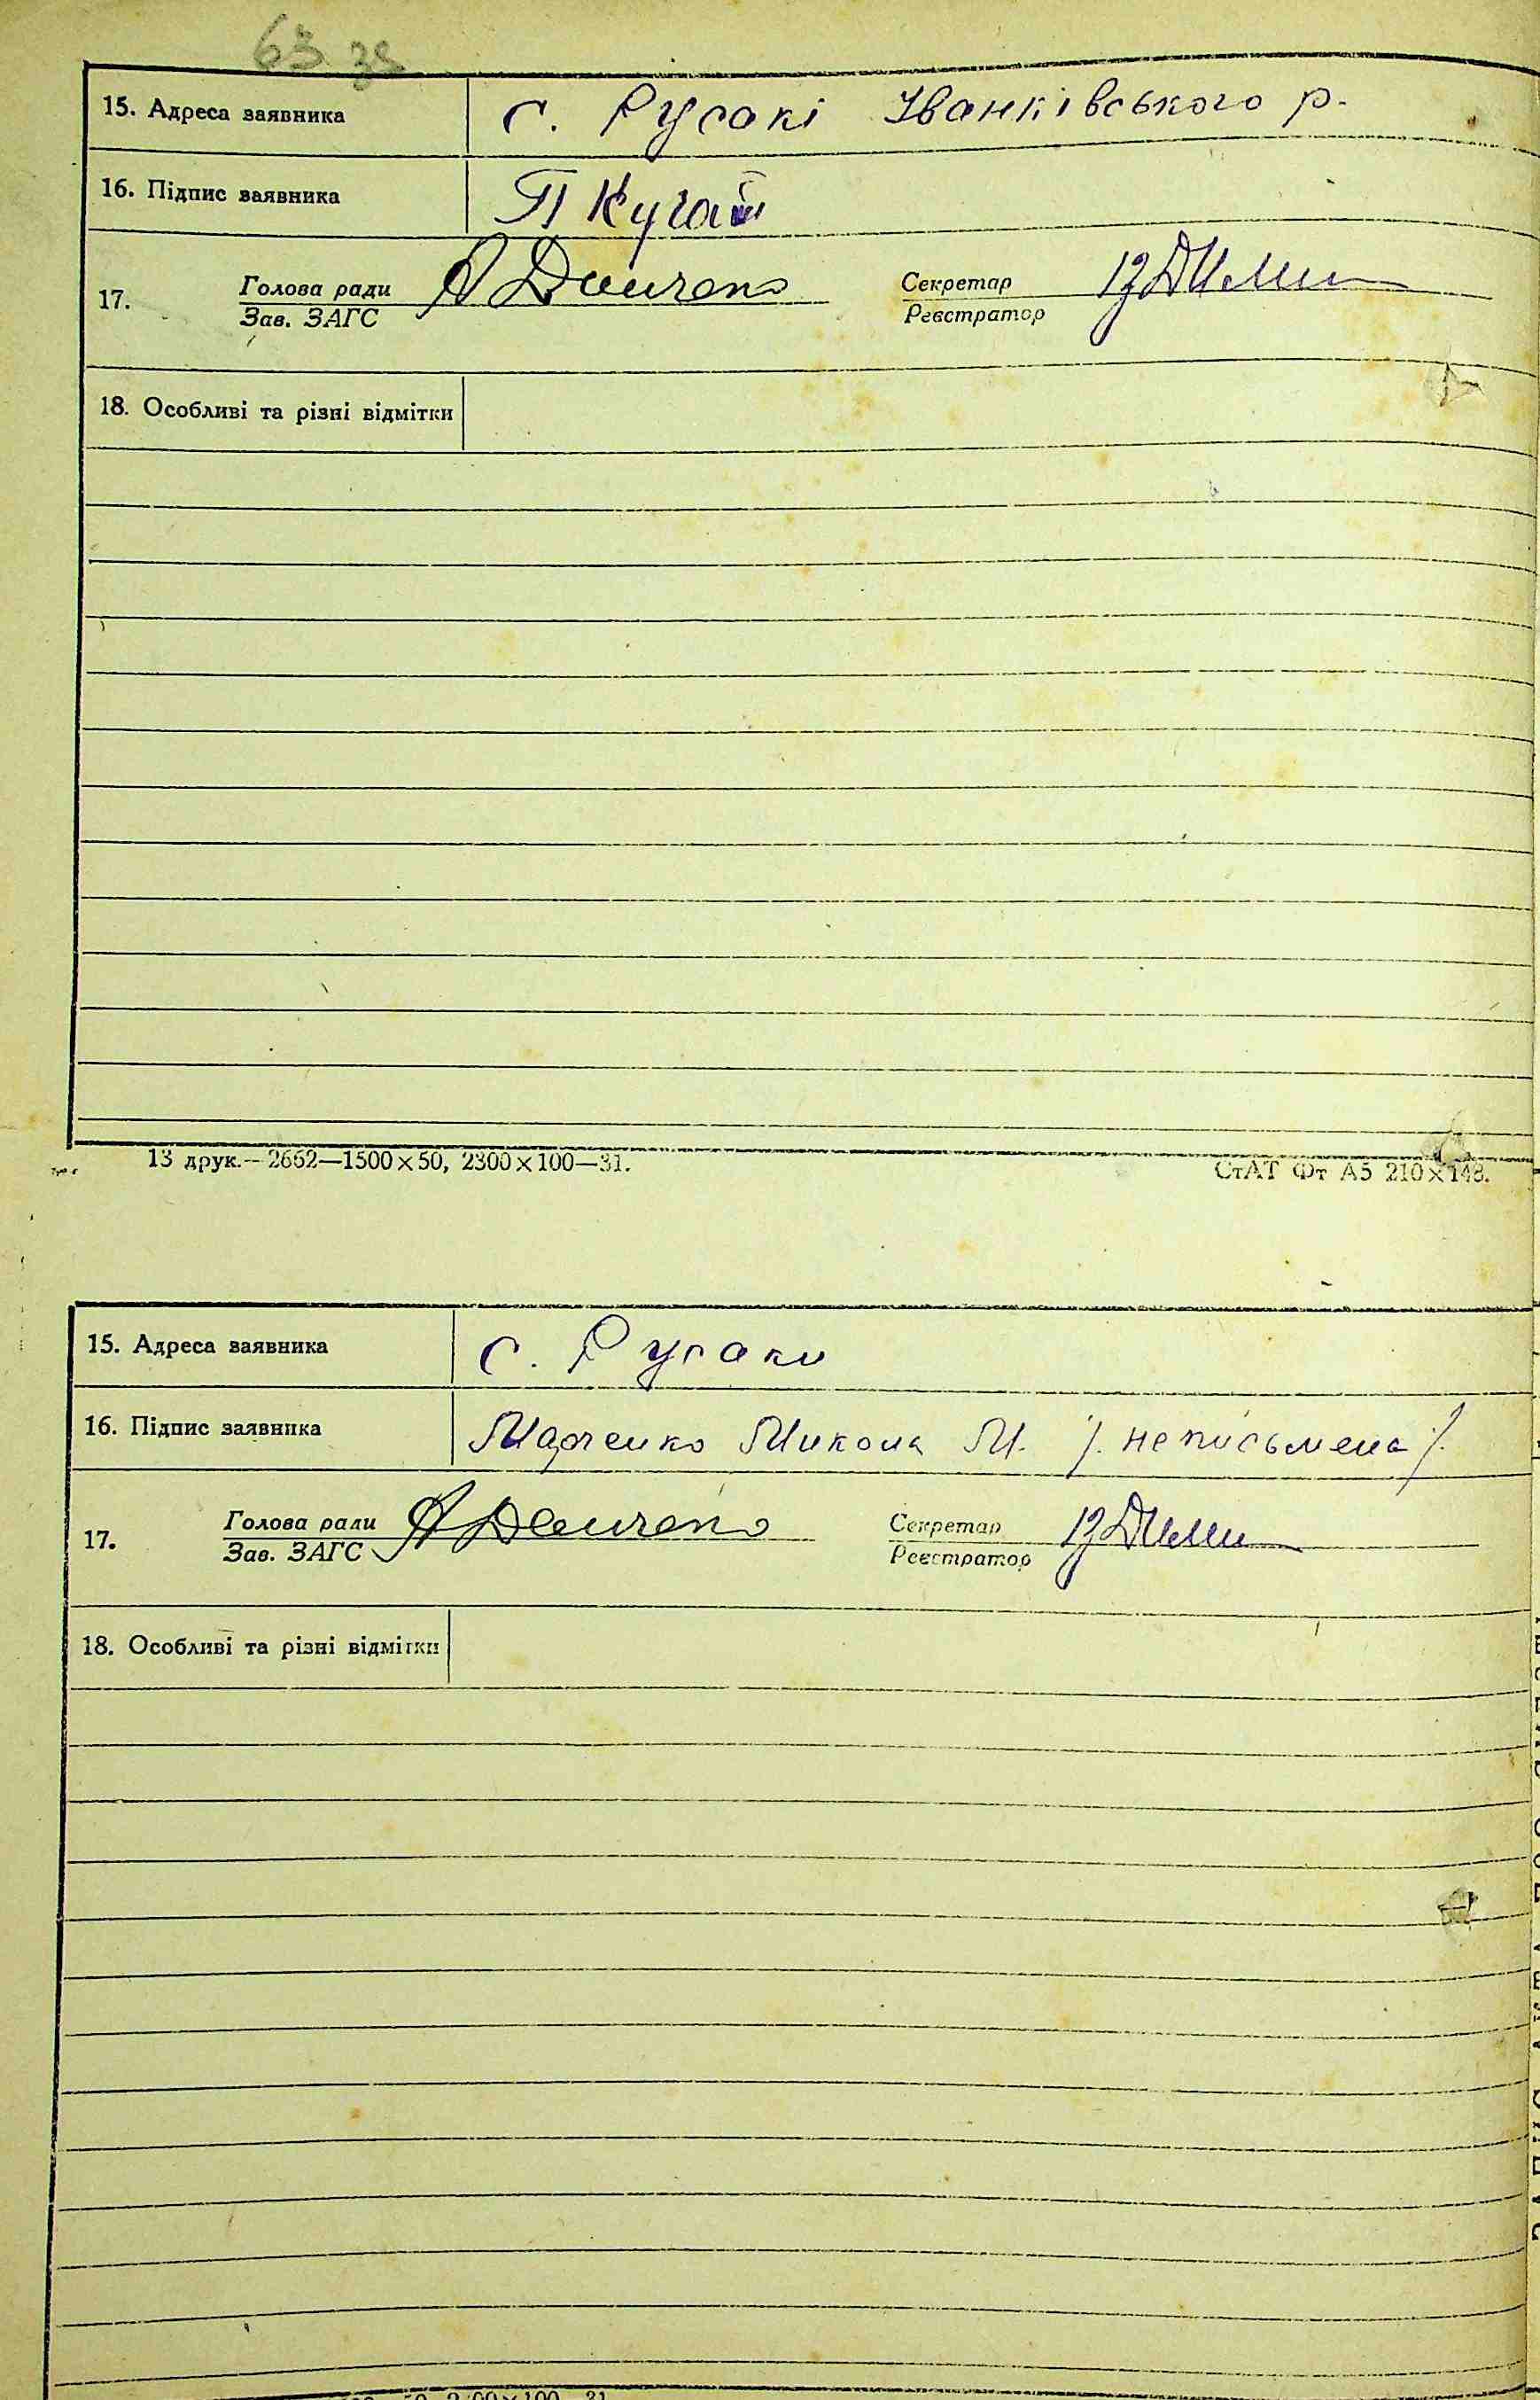 63
15. Адреса заявника с. Русакі Іванківського р.
16. Підпис заявника П Кугай
17. Голова ради Секретар
Зав. ЗАГС Реєстратор
18. Особливі та різні відмітки
13 друк.—2662—1500×50, 2300×100—31. СтАТ Фт А5 210×148.
15. Адреса заявника с. Русаки
16. Підпис заявника Марченко Микола М. /. неписьмена /.
17. Голова ради Секретар
Зав. ЗАГС Реєстратор
18. Особливі та різні відмітки